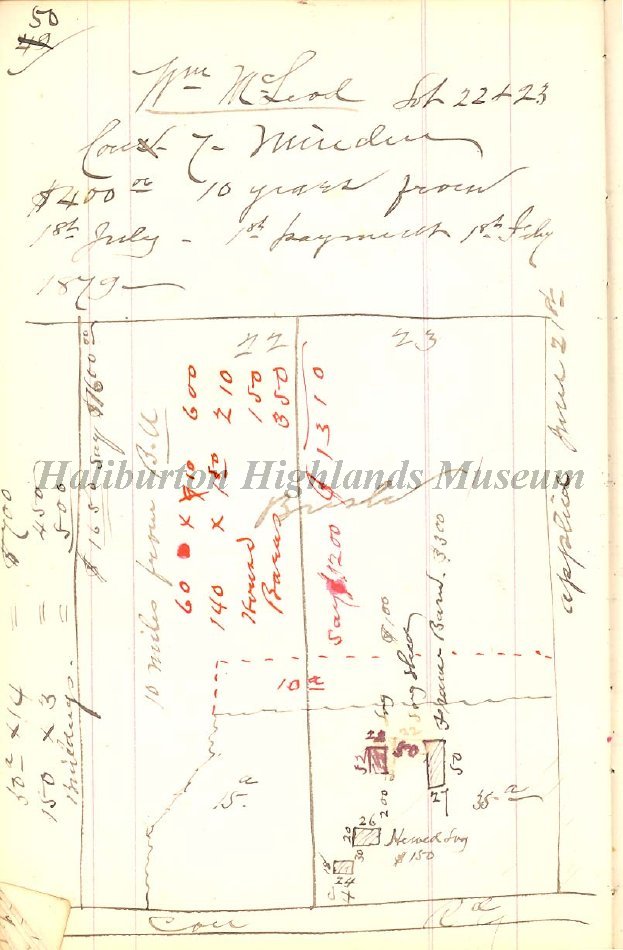 50
49
Wm McLeod Lot 22 & 23
Con 7 Minden
$400 00 10 years from
18th July - 1st payment 18th July
1879
22
23
60 x $10 600
140 x 1 50 210
House 150
Barns 350
$1310
Say $1200
10 miles from B.U
$1650 Say $1600 00
50 a x 14 = $700
150 x 3 = 450
Buildings = 500
Applied June 21st
Haliburton Highlands Museum
Brush
10 a
15 a
35 a
Log Shed $100
Frame Barn $300
50
50
27
200
20
26
Hewed Log
$150
18
24
Con
Rd